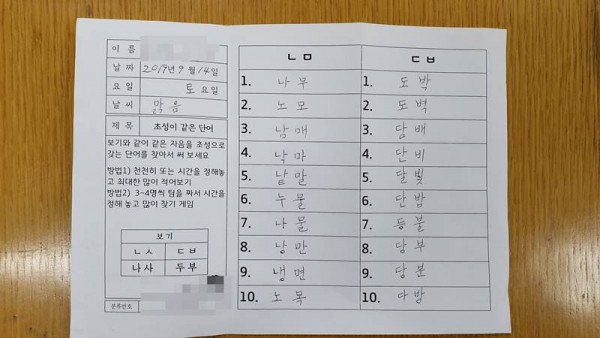 이 름
날 짜 2019년 9월 14일
요 일 토 요일
날 씨 맑 음
제 목 초성이 같은 단어
보기와 같이 같은 자음을 초성으로
갖는 단어를 찾아서 써 보세요
방법1) 천천히 또는 시간을 정해놓
고 최대한 많이 적어보기
방법2) 3~4명씩 팀을 짜서 시간을
정해 놓고 많이 찾기 게임
보기
ㄴ ㅅ ㄷ ㅂ
나 사 두 부
분류번호
ㄴ ㅁ ㄷ ㅂ
1. 나 무 1. 도 박
2. 노 모 2. 도 벽
3. 남 매 3. 담 배
4. 낙 마 4. 단 비
5. 낱 말 5. 달 빛
6. 누 물 6. 단 밤
7. 나 물 7. 등 불
8. 낭 만 8. 당 부
9. 냉 면 9. 당 분
10. 노 목 10. 다 방